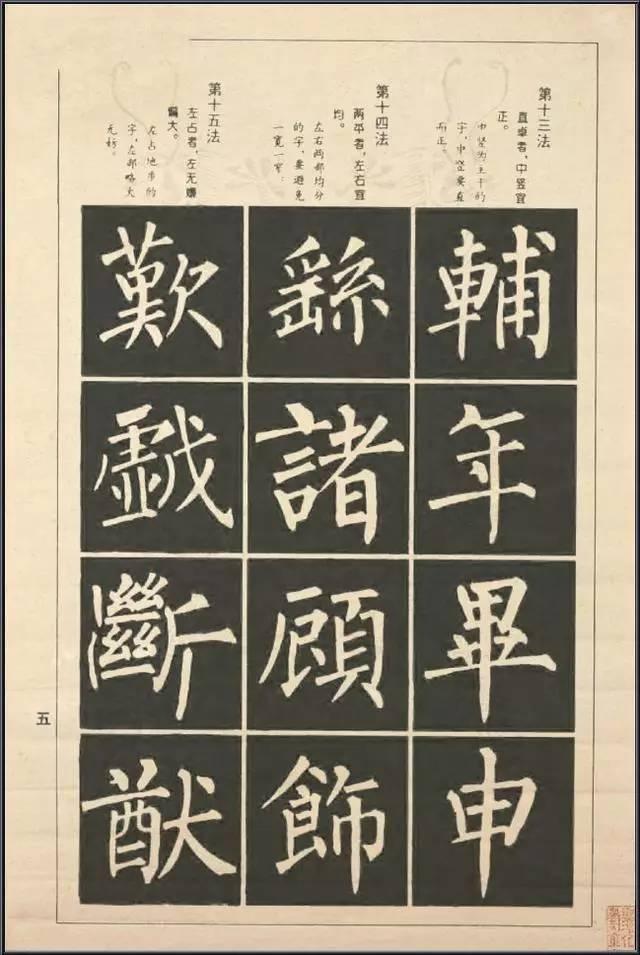 第十三法
直卓者，中竖宜
正。
中竖为主干的
字，中竖要直
而正。
輔
年
畢
申
第十四法
两平者，左右宜
均。
左右两部均分
的字，要避免
一宽一窄。
繇
諸
顧
飾
第十五法
左占者，左无嫌
偏大。
左占地步的
字，左部略大
无妨。
歎
戲
斷
猷
五